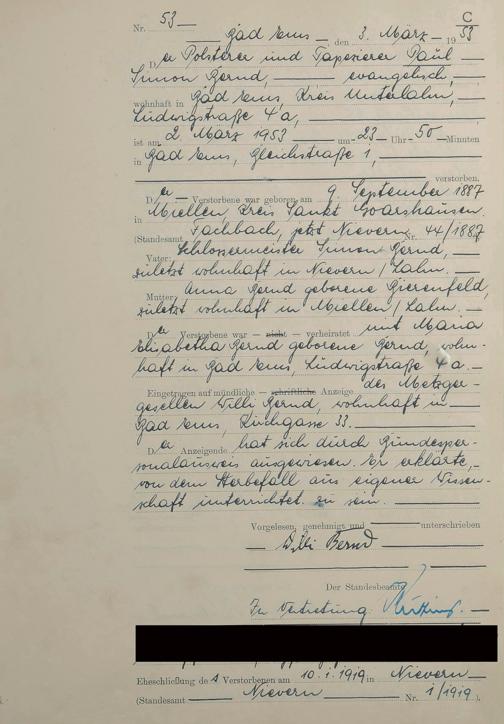 C
Nr. 53
Bad Ems, den 3. März 1953
Der Polsterer und Tapezierer Paul
Simon Bernd, evangelisch,
wohnhaft in Bad Ems, Kreis Unterlahn,
Ludwigstraße 4 a,
ist am 2. März 1953 um 23 Uhr 50 Minuten
in Bad Ems, Gleichstraße 1,
verstorben.
Der Verstorbene war geboren am 9. September 1887
in Miellen, Kreis Sankt Goarshausen.
(Standesamt Fachbach, jetzt Nievern Nr. 44/1887
Vater: Schlossermeister Simon Bernd,
zuletzt wohnhaft in Nievern / Lahn.
Mutter: Anna Bernd geborene Bierenfeld,
zuletzt wohnhaft in Miellen / Lahn.
Der Verstorbene war — nicht — verheiratet mit Maria
Elisabetha Bernd geborene Bernd, wohn-
haft in Bad Ems, Ludwigstraße 4 a.
Eingetragen auf mündliche — schriftliche Anzeige des Metzger-
gesellen Willi Bernd, wohnhaft in
Bad Ems, Kirchgasse 33.
Der Anzeigende hat sich durch Bundesper-
sonalausweis ausgewiesen. Er erklärte,
von dem Sterbefall aus eigener Wissen-
schaft unterrichtet zu sein.
Vorgelesen, genehmigt und unterschrieben
Willi Bernd
Der Standesbeamte
In Vertretung:
Eheschließung des Verstorbenen am 10.1.1919 in Nievern
(Standesamt Nievern Nr. 1/1919).